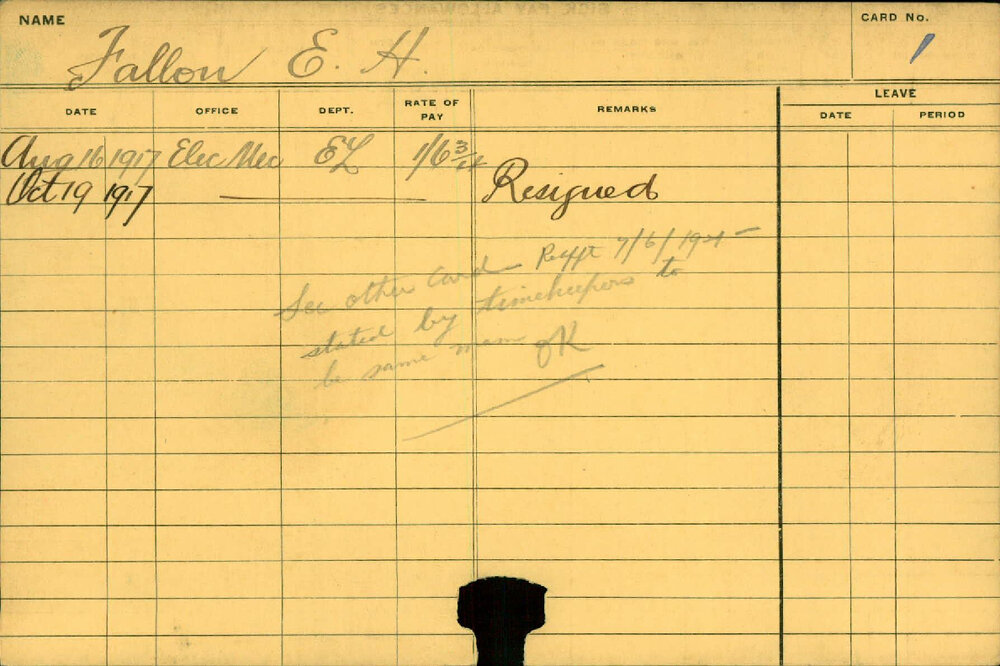 NAME
CARD No.
Fallon E. H.
1
LEAVE
DATE OFFICE DEPT. RATE OF PAY REMARKS DATE PERIOD
Aug 16 1917 Elec Mec EL 1/6 3/4
Oct 19 1917 — Resigned
See other card Reappt 7/6/1921 —
stated by timekeepers to
be same man OK